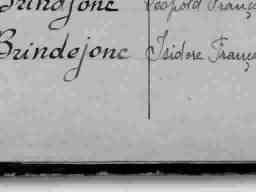 Brindjonc Léopold Franç
Brindejonc Isidore Franç